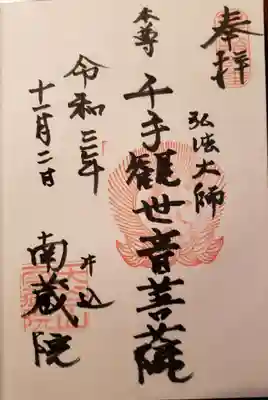 奉拝
弘法大師
本尊
千手観世音菩薩
令和三年
十一月二日
井込
南蔵院